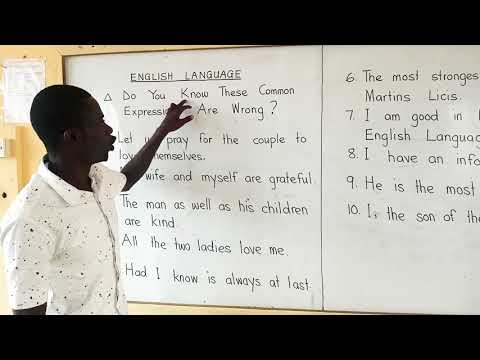 ENGLISH LANGUAGE
Δ Do You Know These Common
Are Wrong?
Let pray for the couple to
themselves.
wife and myself are grateful.
The man as well as his children
are kind.
All the two ladies love me.
Had I know is always at last.
6. The most
Martins Licis.
7. I am good in
English
8. I have an
9. He is the most
10. I, the son of